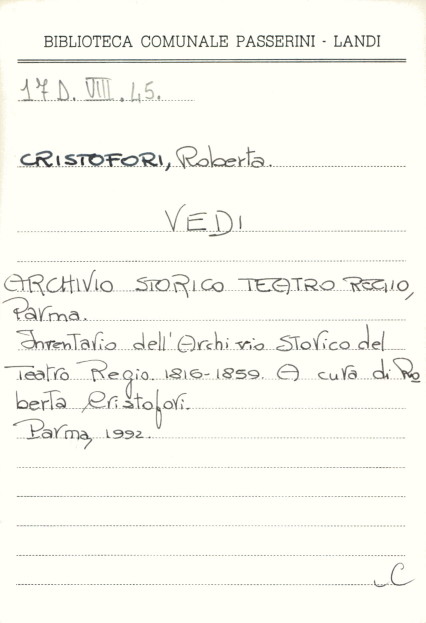 BIBLIOTECA COMUNALE PASSERINI - LANDI
17 D. VIII. 45.
CRISTOFORI, Roberta.
VEDI
ARCHIVIO STORICO TEATRO REGIO,
Parma.
Inventario dell'Archivio Storico del
Teatro Regio. 1816-1859. A cura di Ro
berta Cristofori.
Parma, 1992.
C